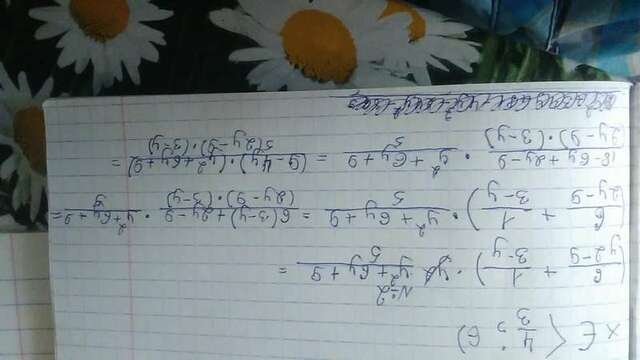 x ∈ < 4/3 ; 6)
N=2
(6/(y2-9) + 1/(3-y)) · (y²+6y+9)/5 =
(6/(2y-9) + 1/(3-y)) · (y²+6y+9)/5 = (6(3-y)+2y-9)/((2y-9)·(3-y)) · (y²+6y+9)/5 =
(18-6y+2y-9)/((2y-9)·(3-y)) · (y²+6y+9)/5 = ((9-4y)·(y²+6y+9))/(5(2y-9)·(3-y)) =